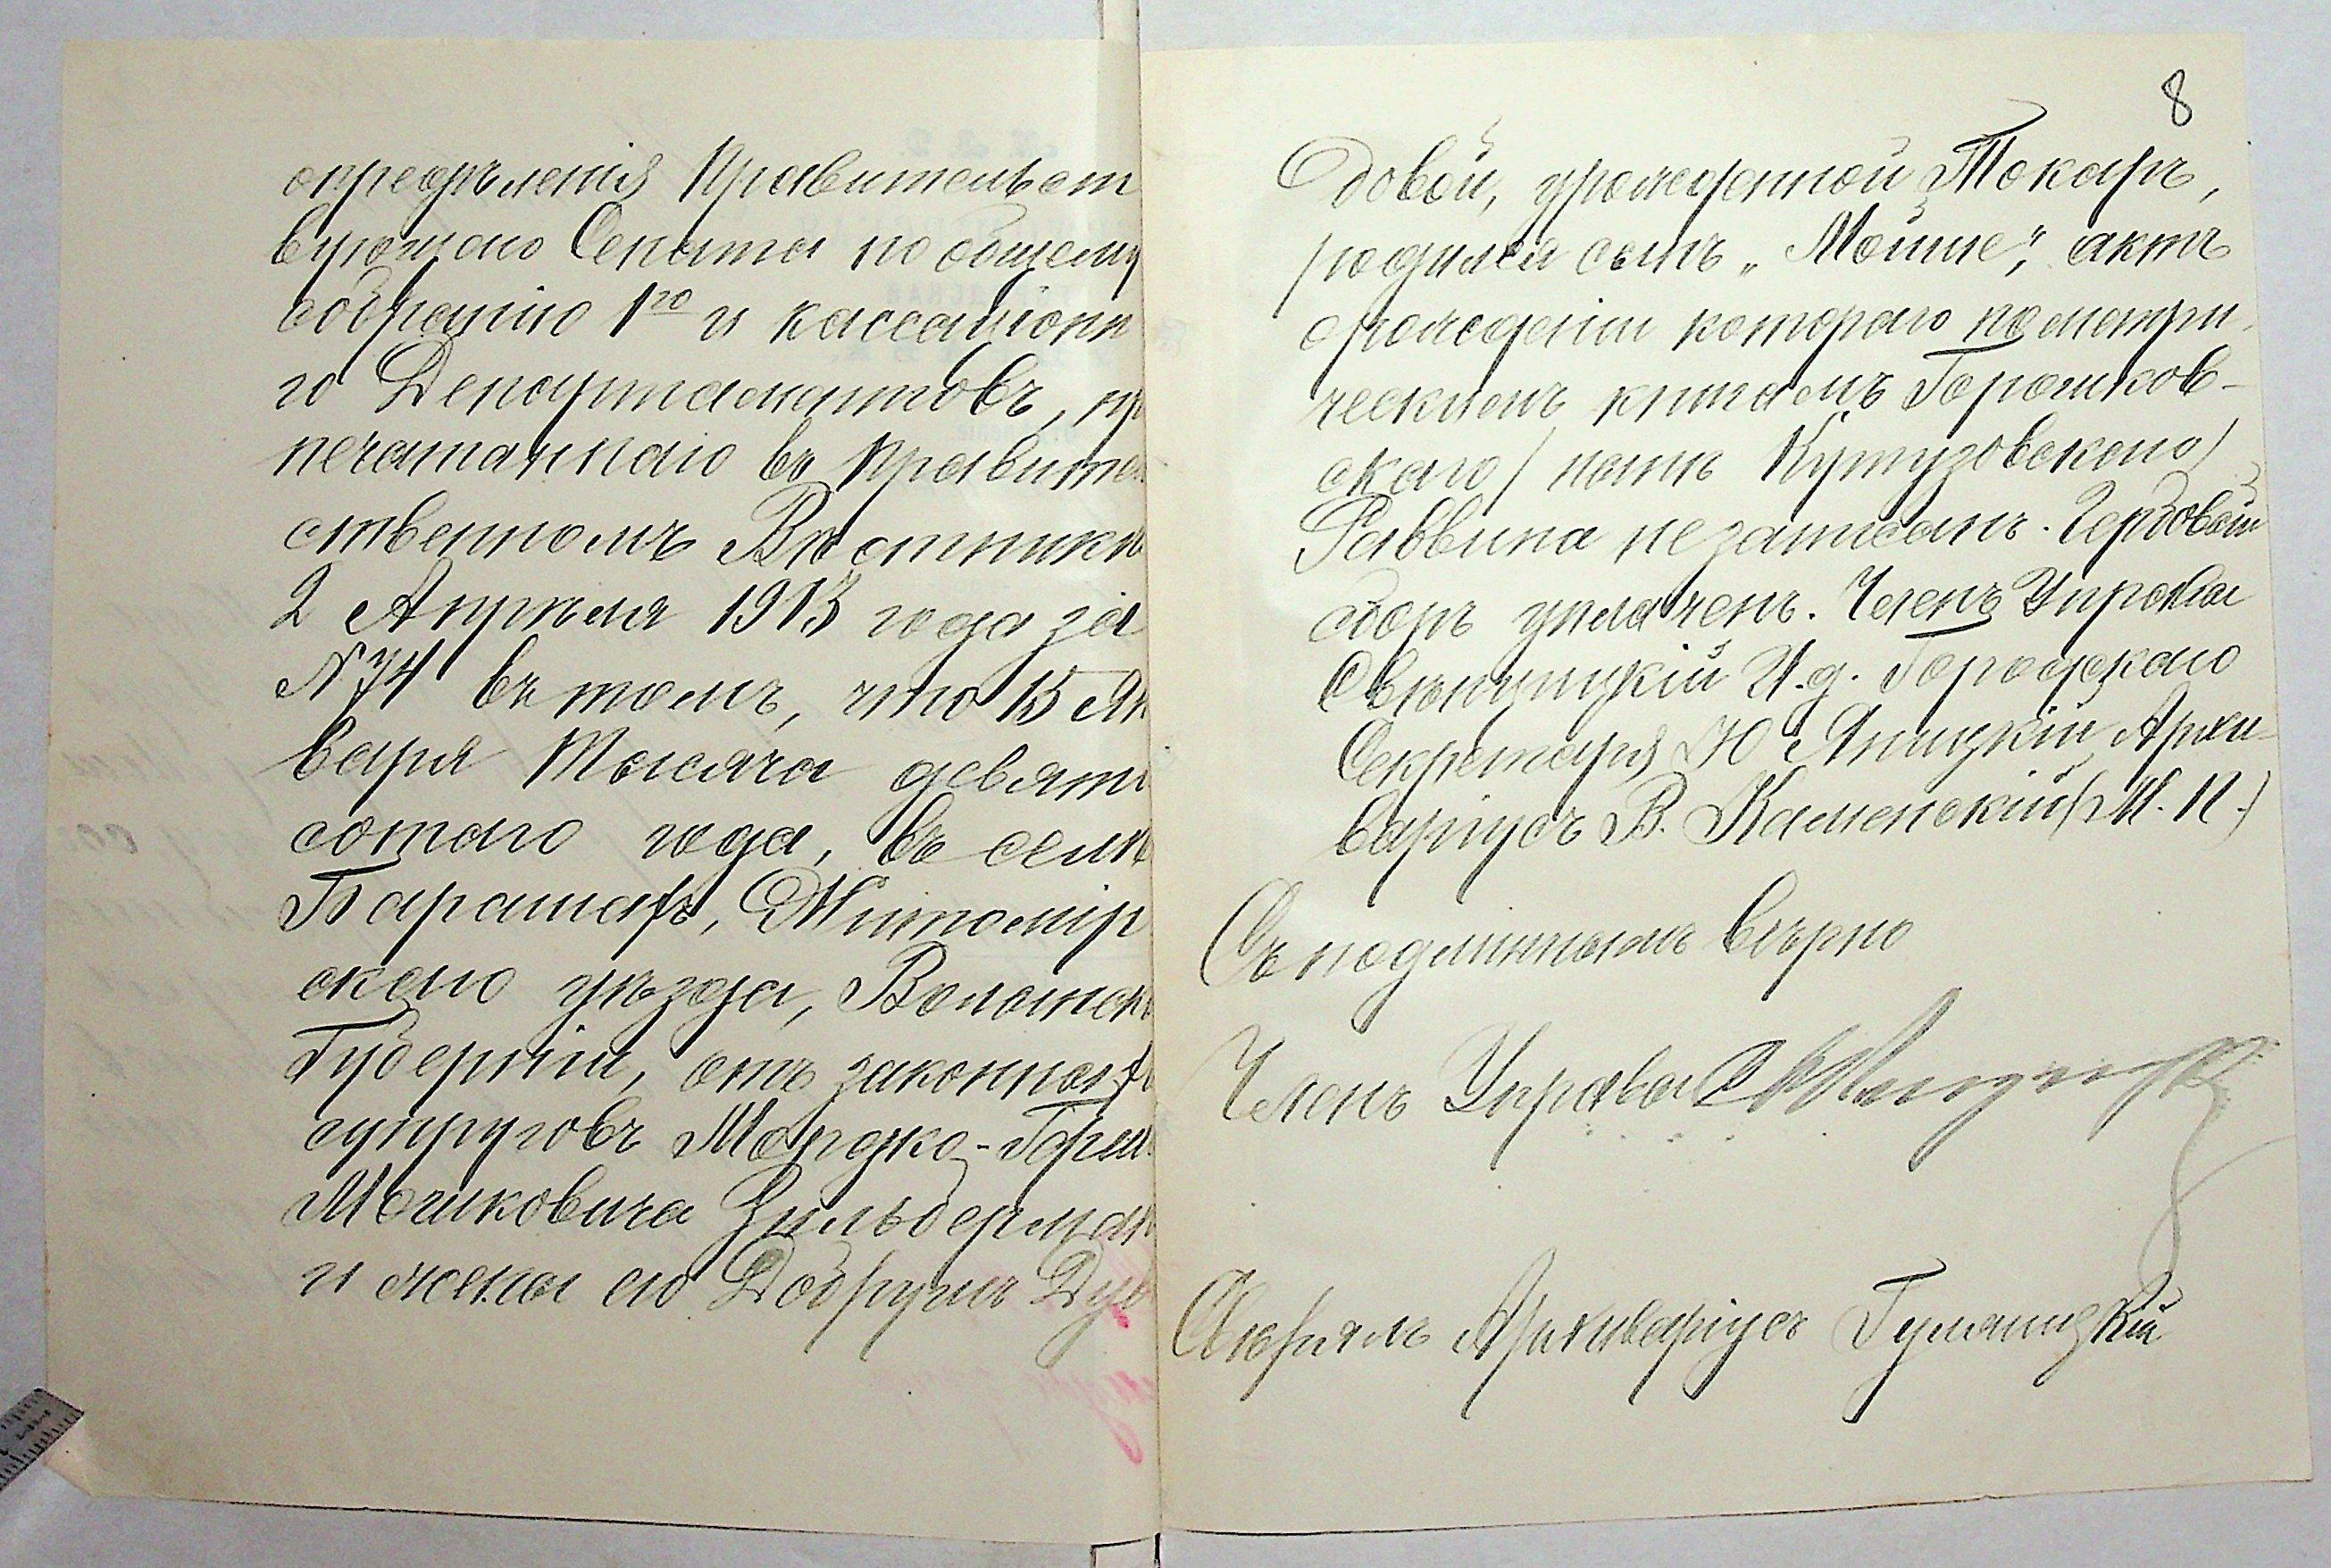 опредѣленія Правительст
вующаго Сената по общему
собранію 1го и кассаціонн
го Департаментовъ, пр
печатаннаго въ Правител
ственномъ Вѣстникѣ
2 Апрѣля 1913 года за
№ 74 въ томъ, что 15 Ян
варя Тысяча девять
сотаго года, въ селѣ
Барашахъ, Житомір
скаго уѣзда, Волынск
Губерніи, отъ законныхъ
супруговъ Мордко-Герш
Мошковича Зильберман
и жены его Добруши Дув
8
Одовой, урожденной Токаръ,
родился сынъ „Мойше", актъ
о рожденіи котораго по метри
ческимъ книгамъ Горошков-
скаго / нынѣ Кутузовскаго /
Раввина не записанъ. Гербовый
сборъ уплаченъ. Членъ Управы
И.д. Городского
Секретаря Ю Яницкій Архи-
варіусъ В. Каменскій (М.П.)
Съ подлиннымъ вѣрно
Членъ Управы
Скрѣпилъ Архиваріусъ